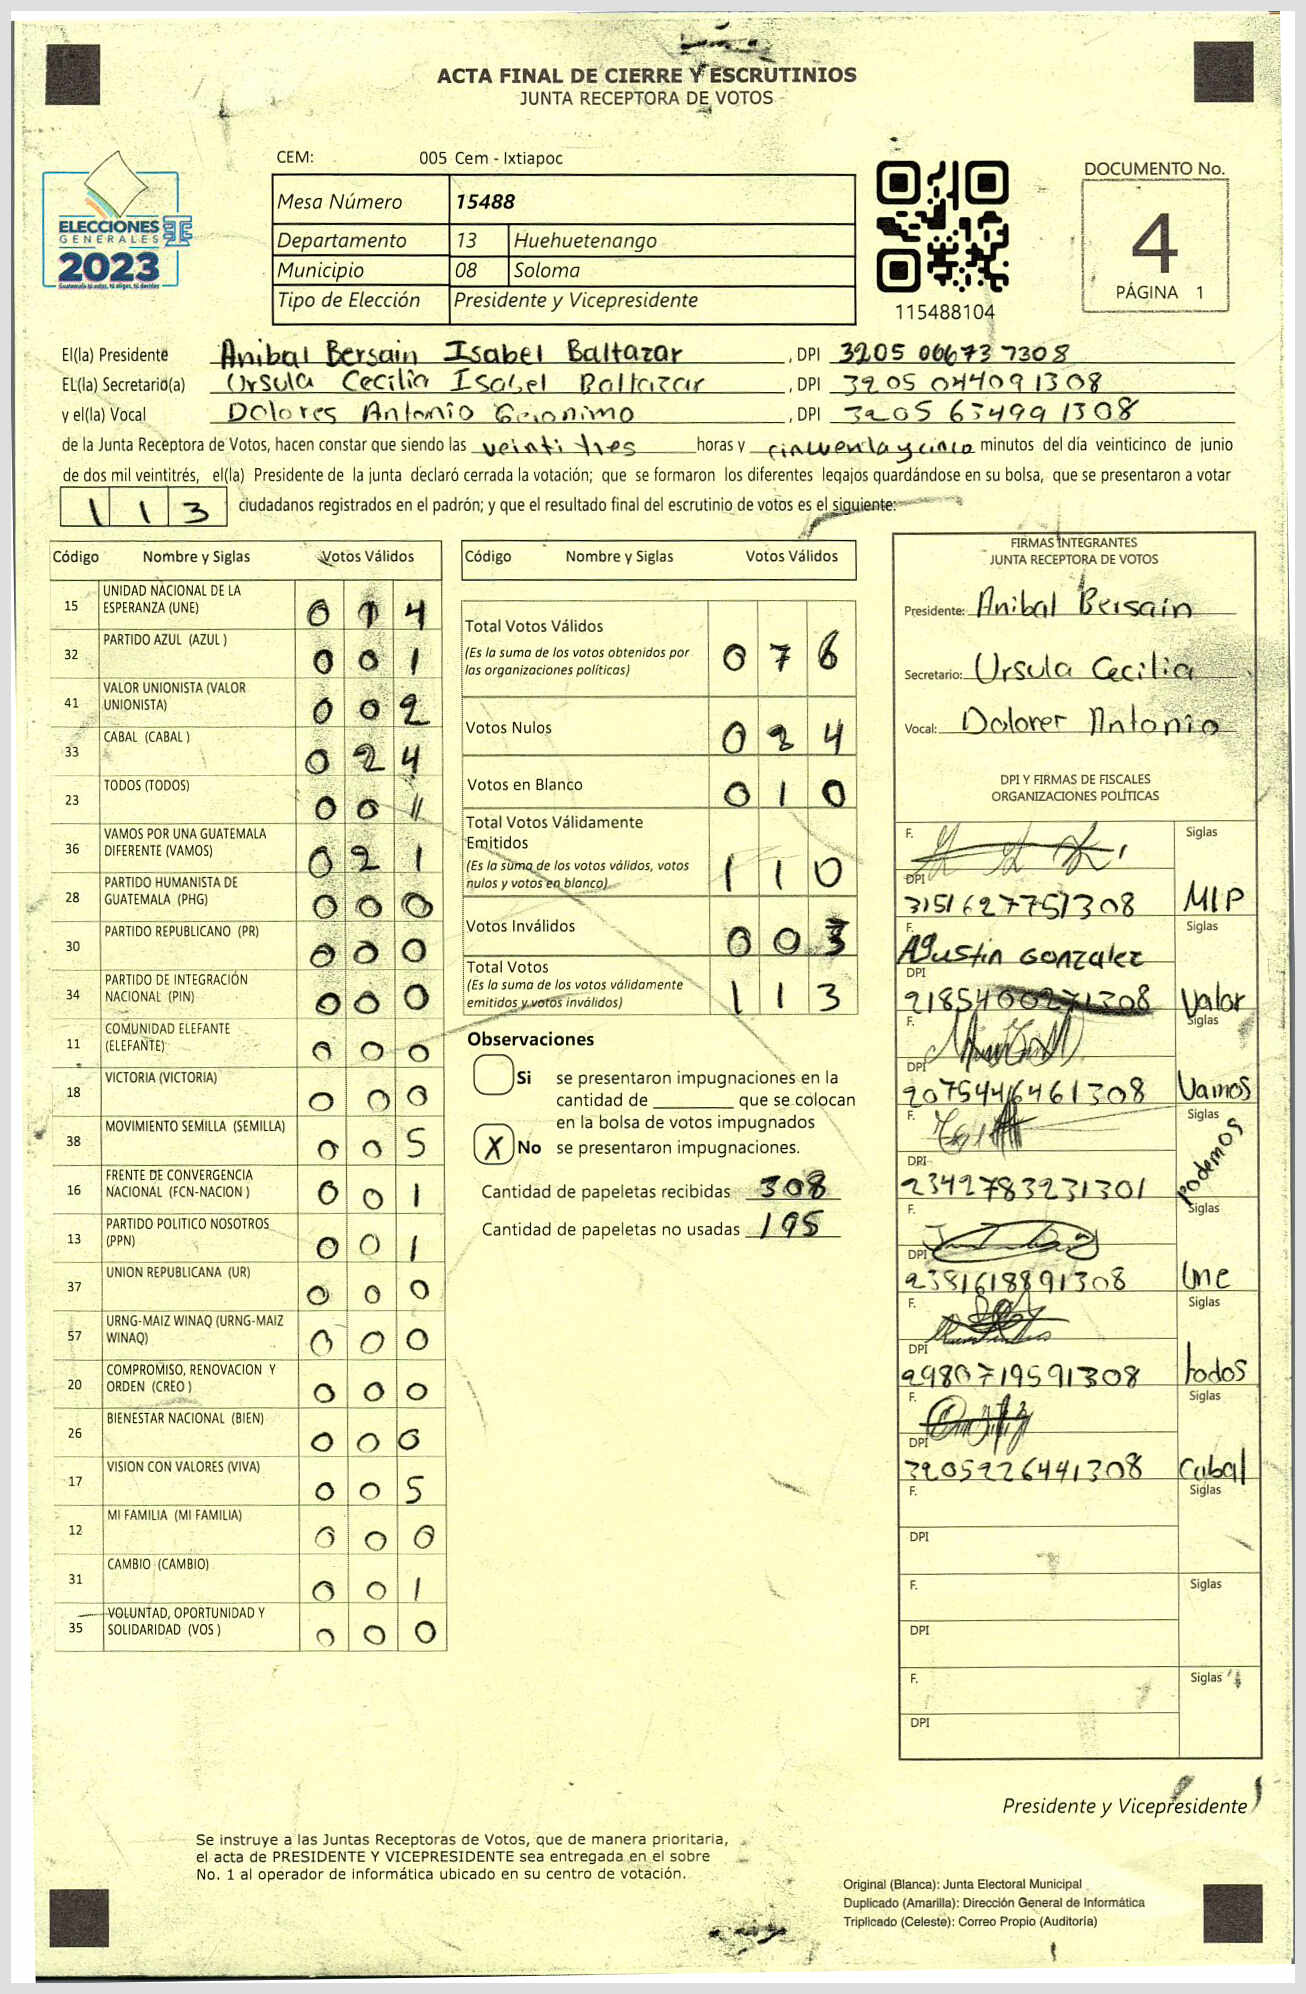 ACTA FINAL DE CIERRE Y ESCRUTINIOS
JUNTA RECEPTORA DE VOTOS
CEM: 005 Cem - Ixtiapoc
ELECCIONES
GENERALES
2023
Mesa Número 15488
Departamento 13 Huehuetenango
Municipio 08 Soloma
Tipo de Elección Presidente y Vicepresidente
115488104
DOCUMENTO No.
4
PÁGINA 1
El(la) Presidente Anibal Bersain Isabel Baltazar , DPI 3205 06673 7308
EL(la) Secretario(a) Ursula Cecilia Isabel Baltazar , DPI 3205 04409 1308
y el(la) Vocal Dolores Antonio Geronimo , DPI 3205 63499 1308
de la Junta Receptora de Votos, hacen constar que siendo las veinti tres horas y cincuenta y cinco minutos del día veinticinco de junio
de dos mil veintitrés, el(la) Presidente de la junta declaró cerrada la votación; que se formaron los diferentes legajos guardándose en su bolsa, que se presentaron a votar
113 ciudadanos registrados en el padrón; y que el resultado final del escrutinio de votos es el siguiente:
Código Nombre y Siglas Votos Válidos
15 UNIDAD NACIONAL DE LA ESPERANZA (UNE) 0 1 4
32 PARTIDO AZUL (AZUL ) 0 0 1
41 VALOR UNIONISTA (VALOR UNIONISTA) 0 0 2
33 CABAL (CABAL ) 0 2 4
23 TODOS (TODOS) 0 0 1
36 VAMOS POR UNA GUATEMALA DIFERENTE (VAMOS) 0 2 1
28 PARTIDO HUMANISTA DE GUATEMALA (PHG) 0 0 0
30 PARTIDO REPUBLICANO (PR) 0 0 0
34 PARTIDO DE INTEGRACIÓN NACIONAL (PIN) 0 0 0
11 COMUNIDAD ELEFANTE (ELEFANTE) 0 0 0
18 VICTORIA (VICTORIA) 0 0 0
38 MOVIMIENTO SEMILLA (SEMILLA) 0 0 5
16 FRENTE DE CONVERGENCIA NACIONAL (FCN-NACION ) 0 0 1
13 PARTIDO POLITICO NOSOTROS (PPN) 0 0 1
37 UNION REPUBLICANA (UR) 0 0 0
57 URNG-MAIZ WINAQ (URNG-MAIZ WINAQ) 0 0 0
20 COMPROMISO, RENOVACION Y ORDEN (CREO ) 0 0 0
26 BIENESTAR NACIONAL (BIEN) 0 0 0
17 VISION CON VALORES (VIVA) 0 0 5
12 MI FAMILIA (MI FAMILIA) 0 0 0
31 CAMBIO (CAMBIO) 0 0 1
35 VOLUNTAD, OPORTUNIDAD Y SOLIDARIDAD (VOS ) 0 0 0
Código Nombre y Siglas Votos Válidos
Total Votos Válidos 0 7 6
(Es la suma de los votos obtenidos por
las organizaciones políticas)
Votos Nulos 0 2 4
Votos en Blanco 0 1 0
Total Votos Válidamente
Emitidos 1 1 0
(Es la suma de los votos válidos, votos
nulos y votos en blanco)
Votos Inválidos 0 0 3
Total Votos
(Es la suma de los votos válidamente
emitidos y votos inválidos) 1 1 3
Observaciones
Si se presentaron impugnaciones en la
cantidad de ________ que se colocan
en la bolsa de votos impugnados
X No se presentaron impugnaciones.
Cantidad de papeletas recibidas 308
Cantidad de papeletas no usadas 195
FIRMAS INTEGRANTES
JUNTA RECEPTORA DE VOTOS
Presidente: Anibal Bersain
Secretario: Ursula Cecilia
Vocal: Dolorer Antonio
DPI Y FIRMAS DE FISCALES
ORGANIZACIONES POLÍTICAS
F. Siglas
DPI
3151627751308 MLP
F. Agustin Gonzalez Siglas
DPI
2185400271308 Valor
F. Siglas
DPI
2075446461308 Vamos
F. Siglas
DPI
2342783231301 Podemos
F. Siglas
DPI
2381618891308 Une
F. Siglas
DPI
2980719591308 todos
F. Siglas
DPI
3205226441308 Cabal
F. Siglas
DPI
F. Siglas
DPI
F. Siglas
DPI
Presidente y Vicepresidente
Se instruye a las Juntas Receptoras de Votos, que de manera prioritaria,
el acta de PRESIDENTE Y VICEPRESIDENTE sea entregada en el sobre
No. 1 al operador de informática ubicado en su centro de votación.
Original (Blanca): Junta Electoral Municipal
Duplicado (Amarilla): Dirección General de Informática
Triplicado (Celeste): Correo Propio (Auditoría)